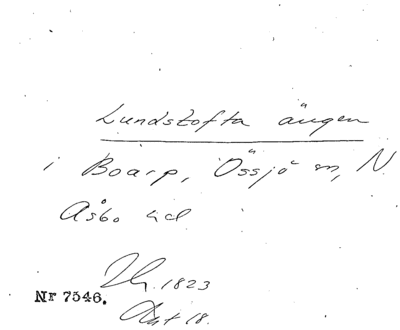 Lundstofta ängen
i Boarp, Össjö sn, N.
Åsbo hd
1823
Nr 7546.
Akt 18.